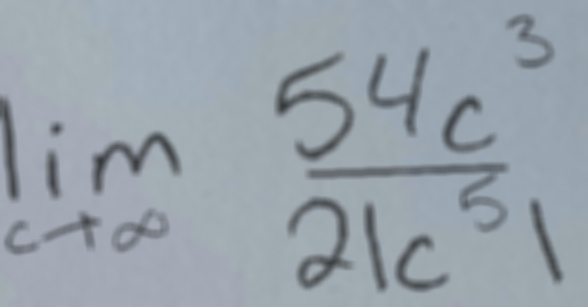 lim c→∞ 54c³
21c⁵1